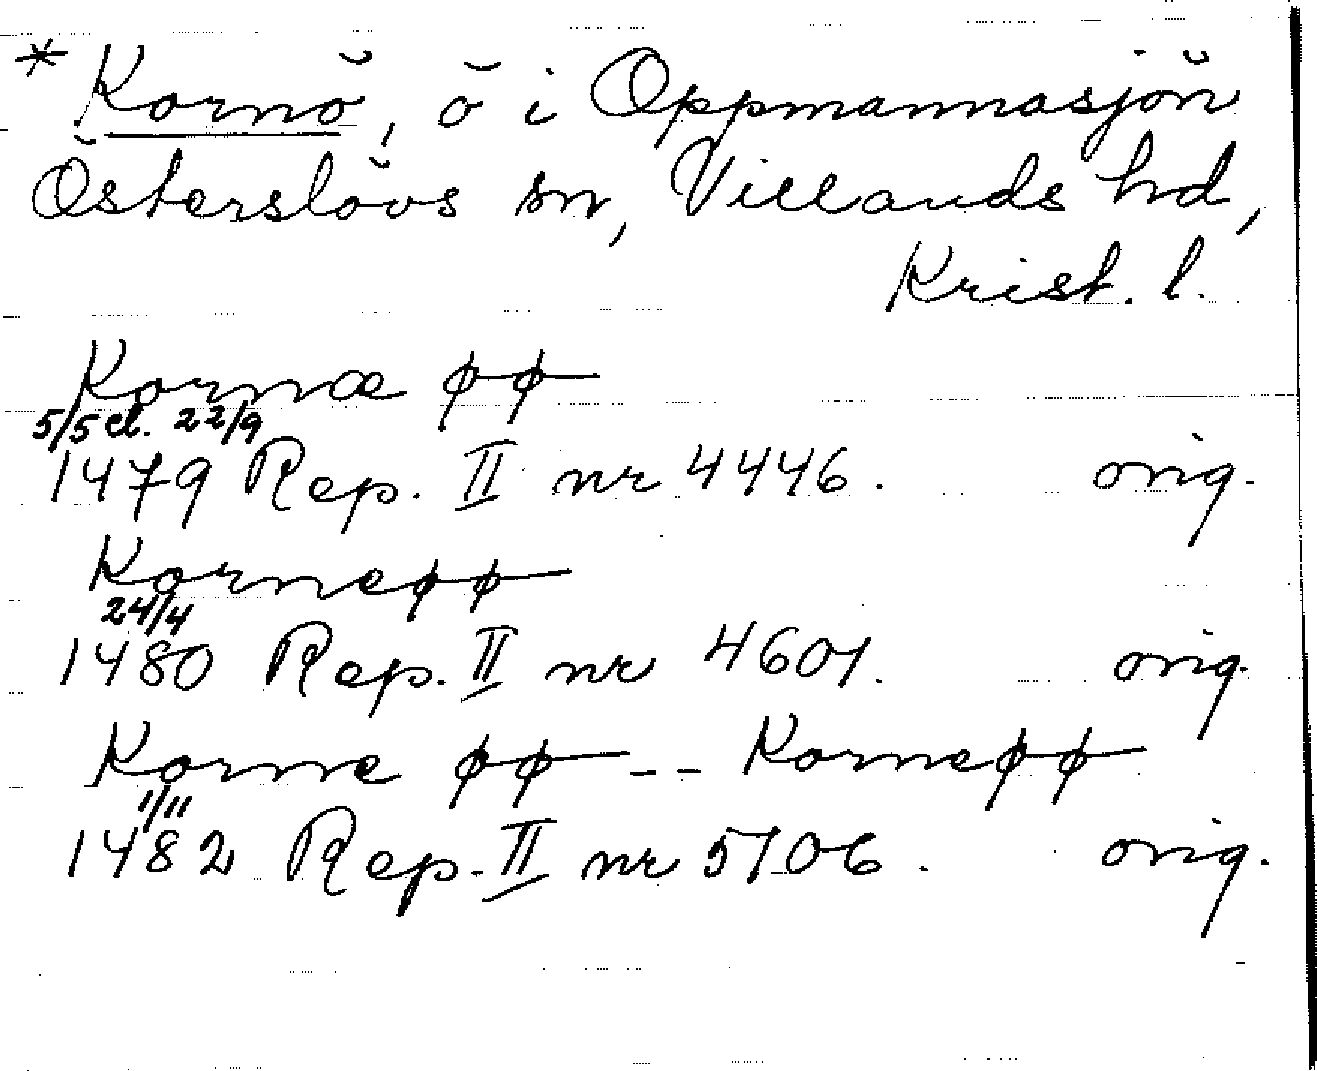 * Kornö, ö i Oppmannasjön
Österslövs sn, Villands hd,
Krist. l.
Kornæ øø
5/5 el. 22/9
1479 Rep. II nr 4446. orig.
Korneøø
24/4
1480 Rep. II nr 4601. orig.
Korne øø -- Korneøø
1/11
1482 Rep. II nr 5106. orig.